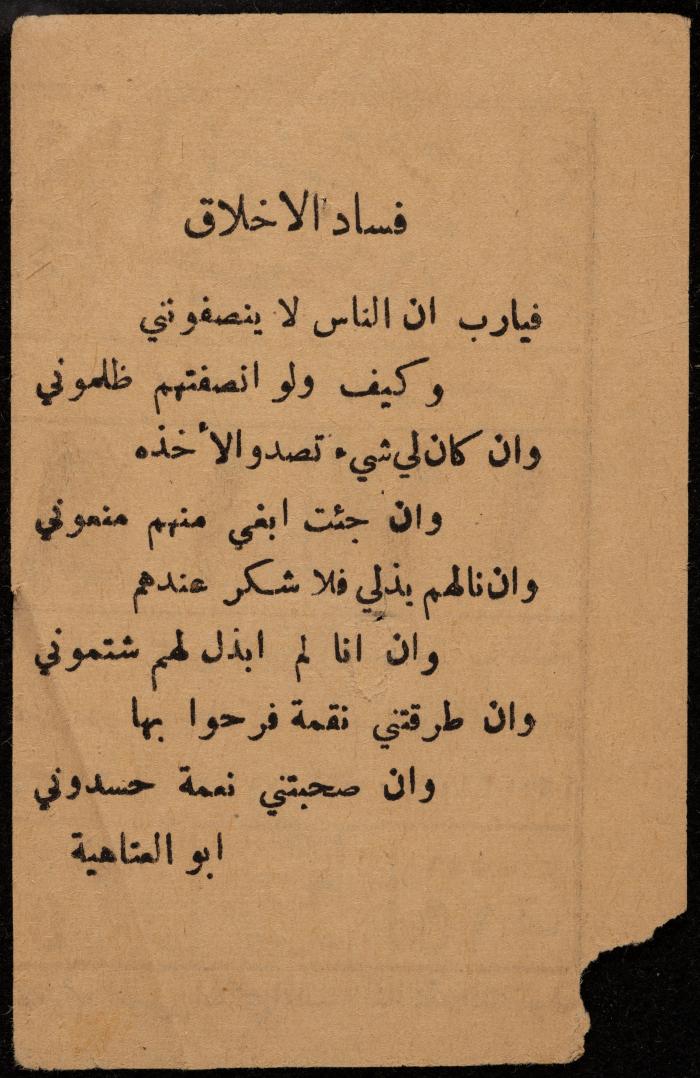 فساد الاخلاق
فيارب ان الناس لا ينصفونني
وكيف ولو انصفتهم ظلموني
وان كان لي شيء تصدوا لأخذه
وان جئت ابغي منهم منعوني
وان نالهم بذلي فلا شكر عندهم
وان انا لم ابذل لهم شتموني
وان طرقتني نقمة فرحوا بها
وان صحبتني نعمة حسدوني
ابو العتاهية